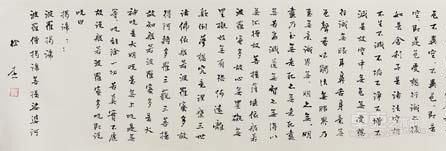 色不異空空不異色色即是
空即是色受想行識亦復
如是舍利子是諸法空相
不生不滅不垢不淨不增不
減是故空中無色無受想
行識無眼耳鼻舌身意無
色聲香味觸法無眼界乃
至無意識界無無明亦無無明
盡乃至無老死亦無老死
盡無苦集滅道無智亦無得以
無所得故菩提薩埵依般若
波羅蜜多故心無罣礙無
罣礙故無有恐怖遠離
顛倒夢想究竟涅槃三世
諸佛依般若波羅蜜多故
得阿耨多羅三藐三菩提
故知般若波羅蜜多是大
神咒是大明咒是無上咒是無
等等咒能除一切苦真實不虛
故說般若波羅蜜多咒即說
咒曰
揭諦揭諦
波羅揭諦
波羅僧揭諦菩提薩婆訶